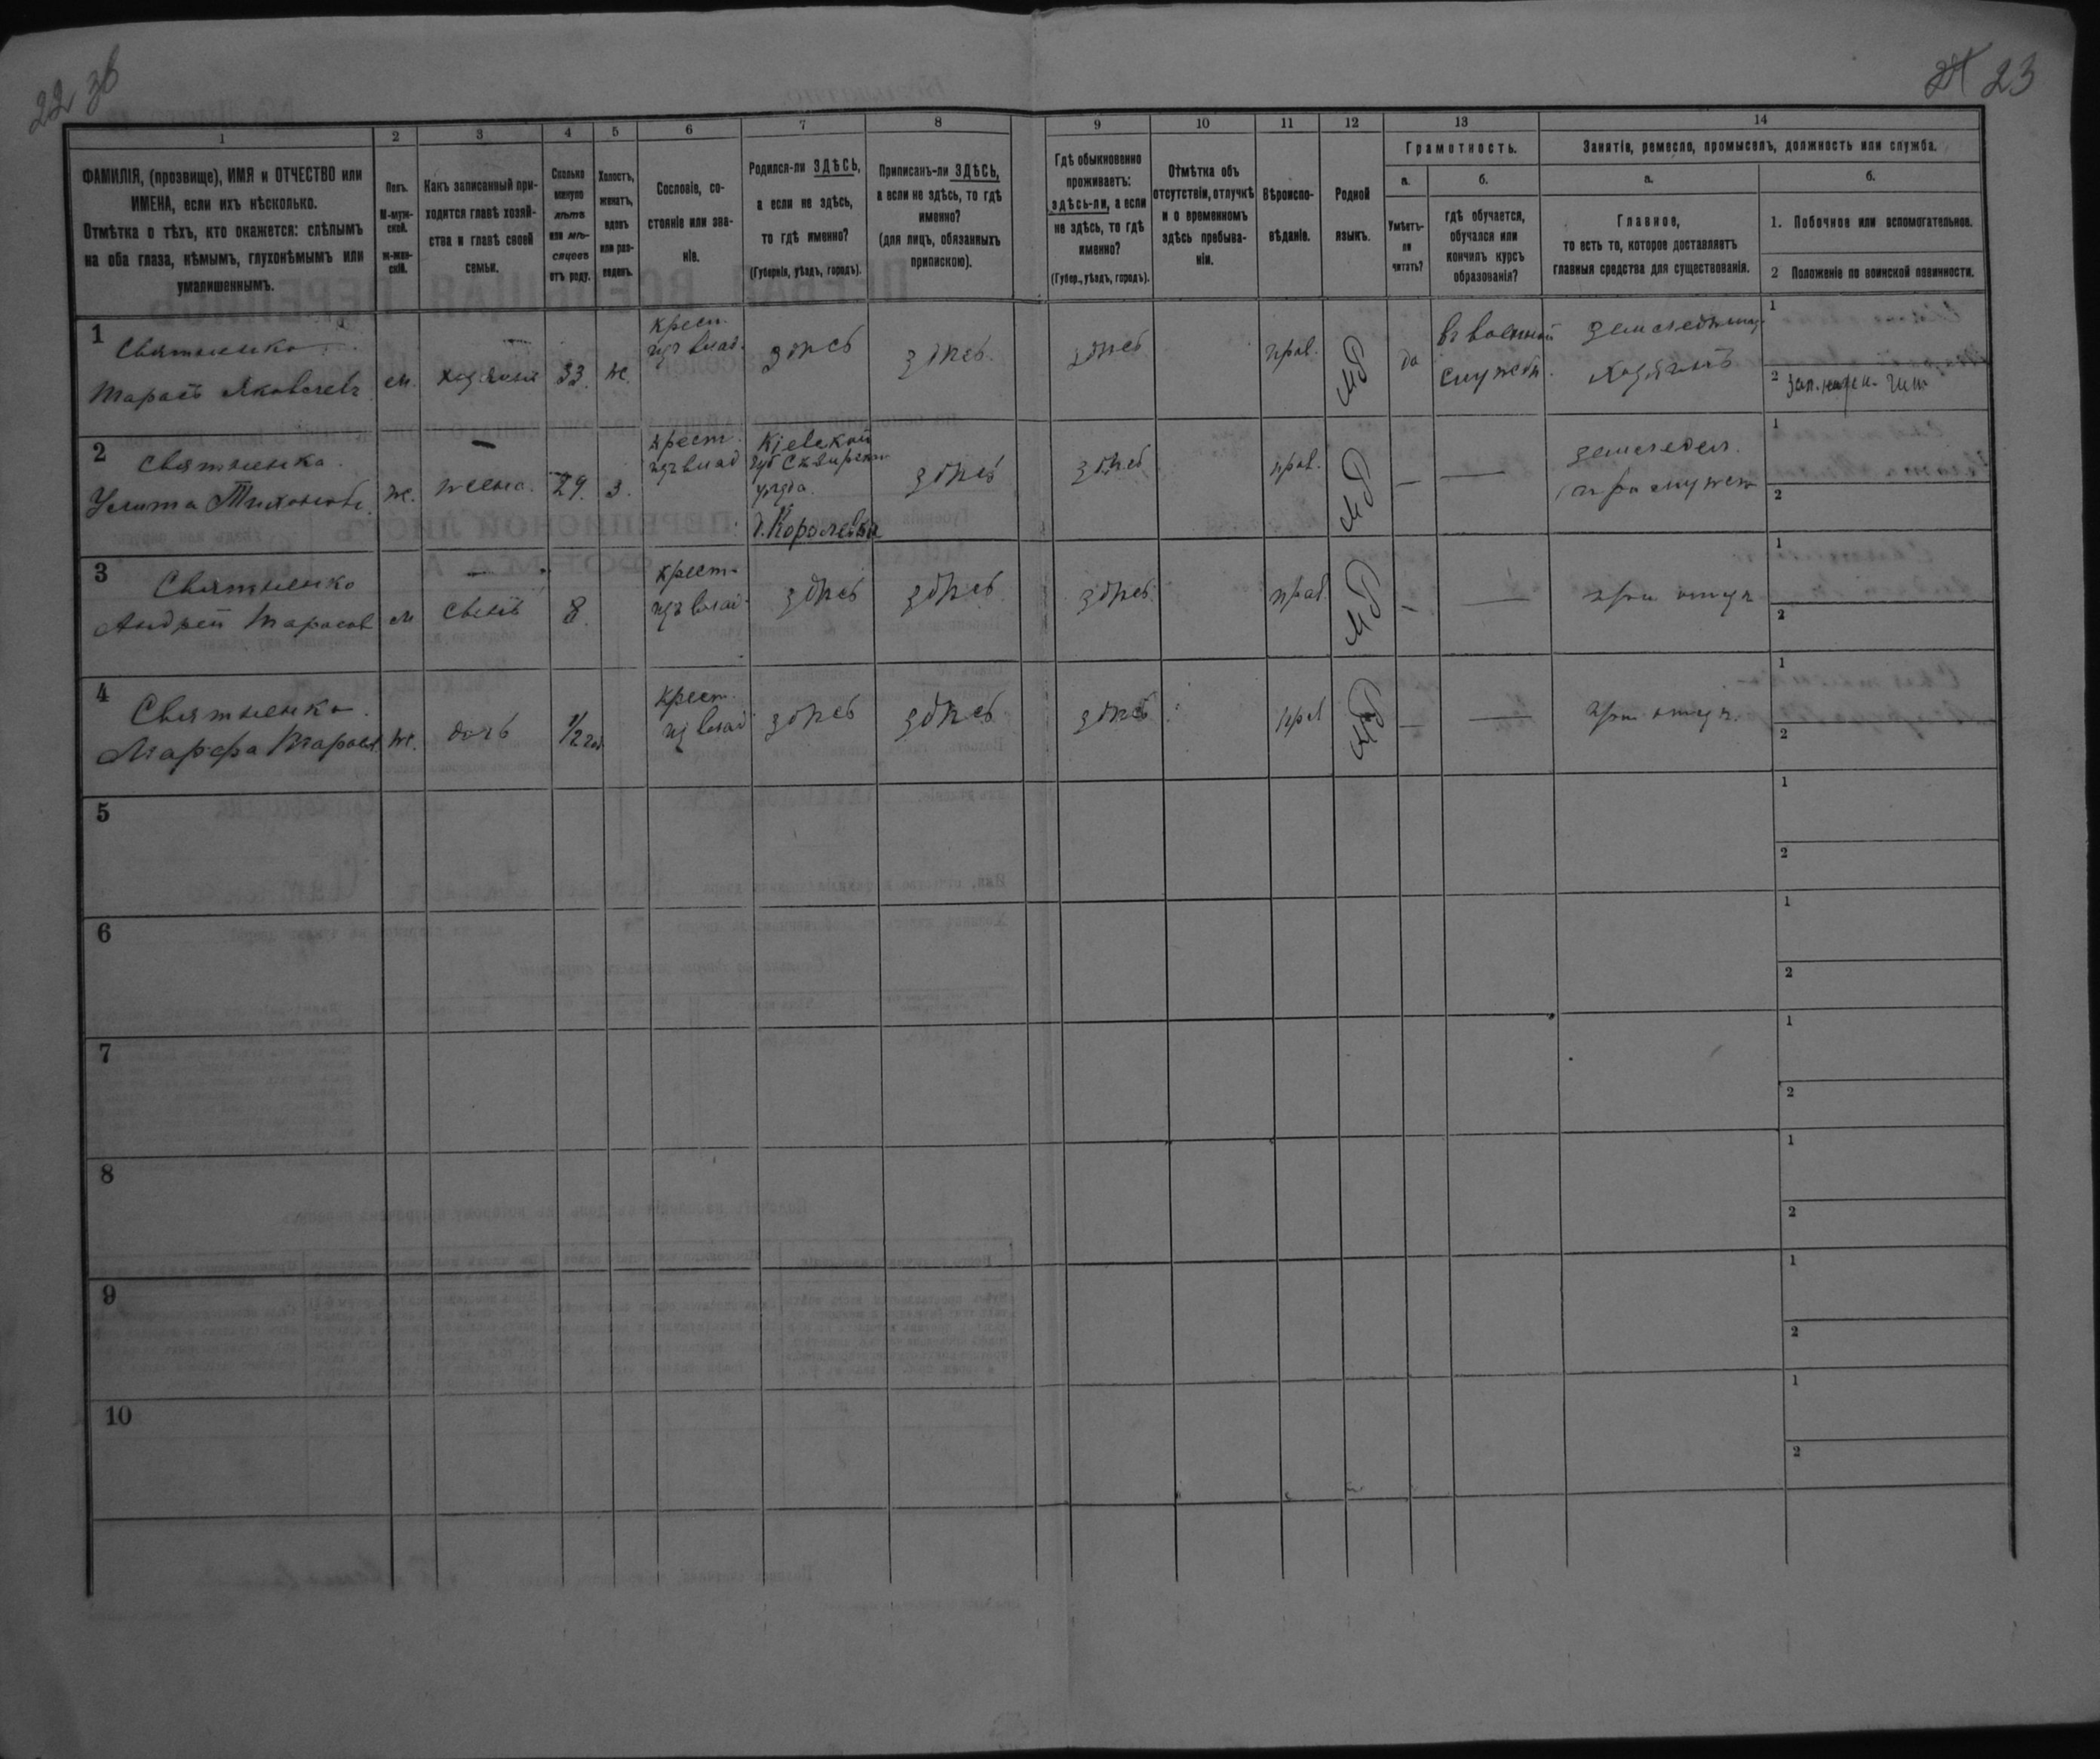 22 36
23
1 2 3 4 5 6 7 8 9 10 11 12 13 14
ФАМИЛІЯ, (прозвище), ИМЯ и ОТЧЕСТВО или
ИМЕНА, если ихъ нѣсколько.
Отмѣтка о тѣхъ, кто окажется: слѣпымъ
на оба глаза, нѣмымъ, глухонѣмымъ или
умалишеннымъ.
Полъ.
М-муж-
ской.
ж-жен-
скій.
Какъ записанный при-
ходится главѣ хозяй-
ства и главѣ своей
семьи.
Сколько
минуло
лѣтъ
или мѣ-
сяцевъ
отъ роду.
Холостъ,
женатъ,
вдовъ
или раз-
веденъ.
Сословіе, со-
стояніе или зва-
ніе.
Родился-ли ЗДѢСЬ,
а если не здѣсь,
то гдѣ именно?
(Губернія, уѣздъ, городъ).
Приписанъ-ли ЗДѢСЬ,
а если не здѣсь, то гдѣ
именно?
(для лицъ, обязанныхъ
припискою).
Гдѣ обыкновенно
проживаетъ:
здѣсь-ли, а если
не здѣсь, то гдѣ
именно?
(Губер., уѣздъ, городъ).
Отмѣтка объ
отсутствіи, отлучкѣ
и о временномъ
здѣсь пребыва-
ніи.
Вѣроиспо-
вѣданіе.
Родной
языкъ.
Грамотность.
а.
Умѣетъ-
ли
читать?
б.
гдѣ обучается,
обучался или
кончилъ курсъ
образованія?
Занятіе, ремесло, промыселъ, должность или служба.
а.
Главное,
то есть то, которое доставляетъ
главныя средства для существованія.
б.
1. Побочное или вспомогательное.
2 Положеніе по воинской повинности.
1 Святненко
Тарасъ Яковлевъ м. хозяинъ 33. ж. крест. изъ влад. здѣсь здѣсь здѣсь прав. МР да въ военной службѣ земледѣлецъ хозяинъ 1
2 зап.
2 Святненко
Улита Тихонова ж. жена. 29. з. крест. изъ влад Кіевской губ Сквирскаго уѣзда д. Королевка здѣсь здѣсь прав. МР — — земледел. при мужѣ 1
2
3 Святненко
Андрей Тарасов м сынъ 8. крест. изъ влад. здѣсь здѣсь здѣсь прав. МР — — при отцѣ 1
2
4 Святненко
Марфа Тарасов. ж. дочь 1/2 год. крест. из влад здѣсь здѣсь здѣсь прав МР — — при отцѣ 1
2
5 1
2
6 1
2
7 1
2
8 1
2
9 1
2
10 1
2